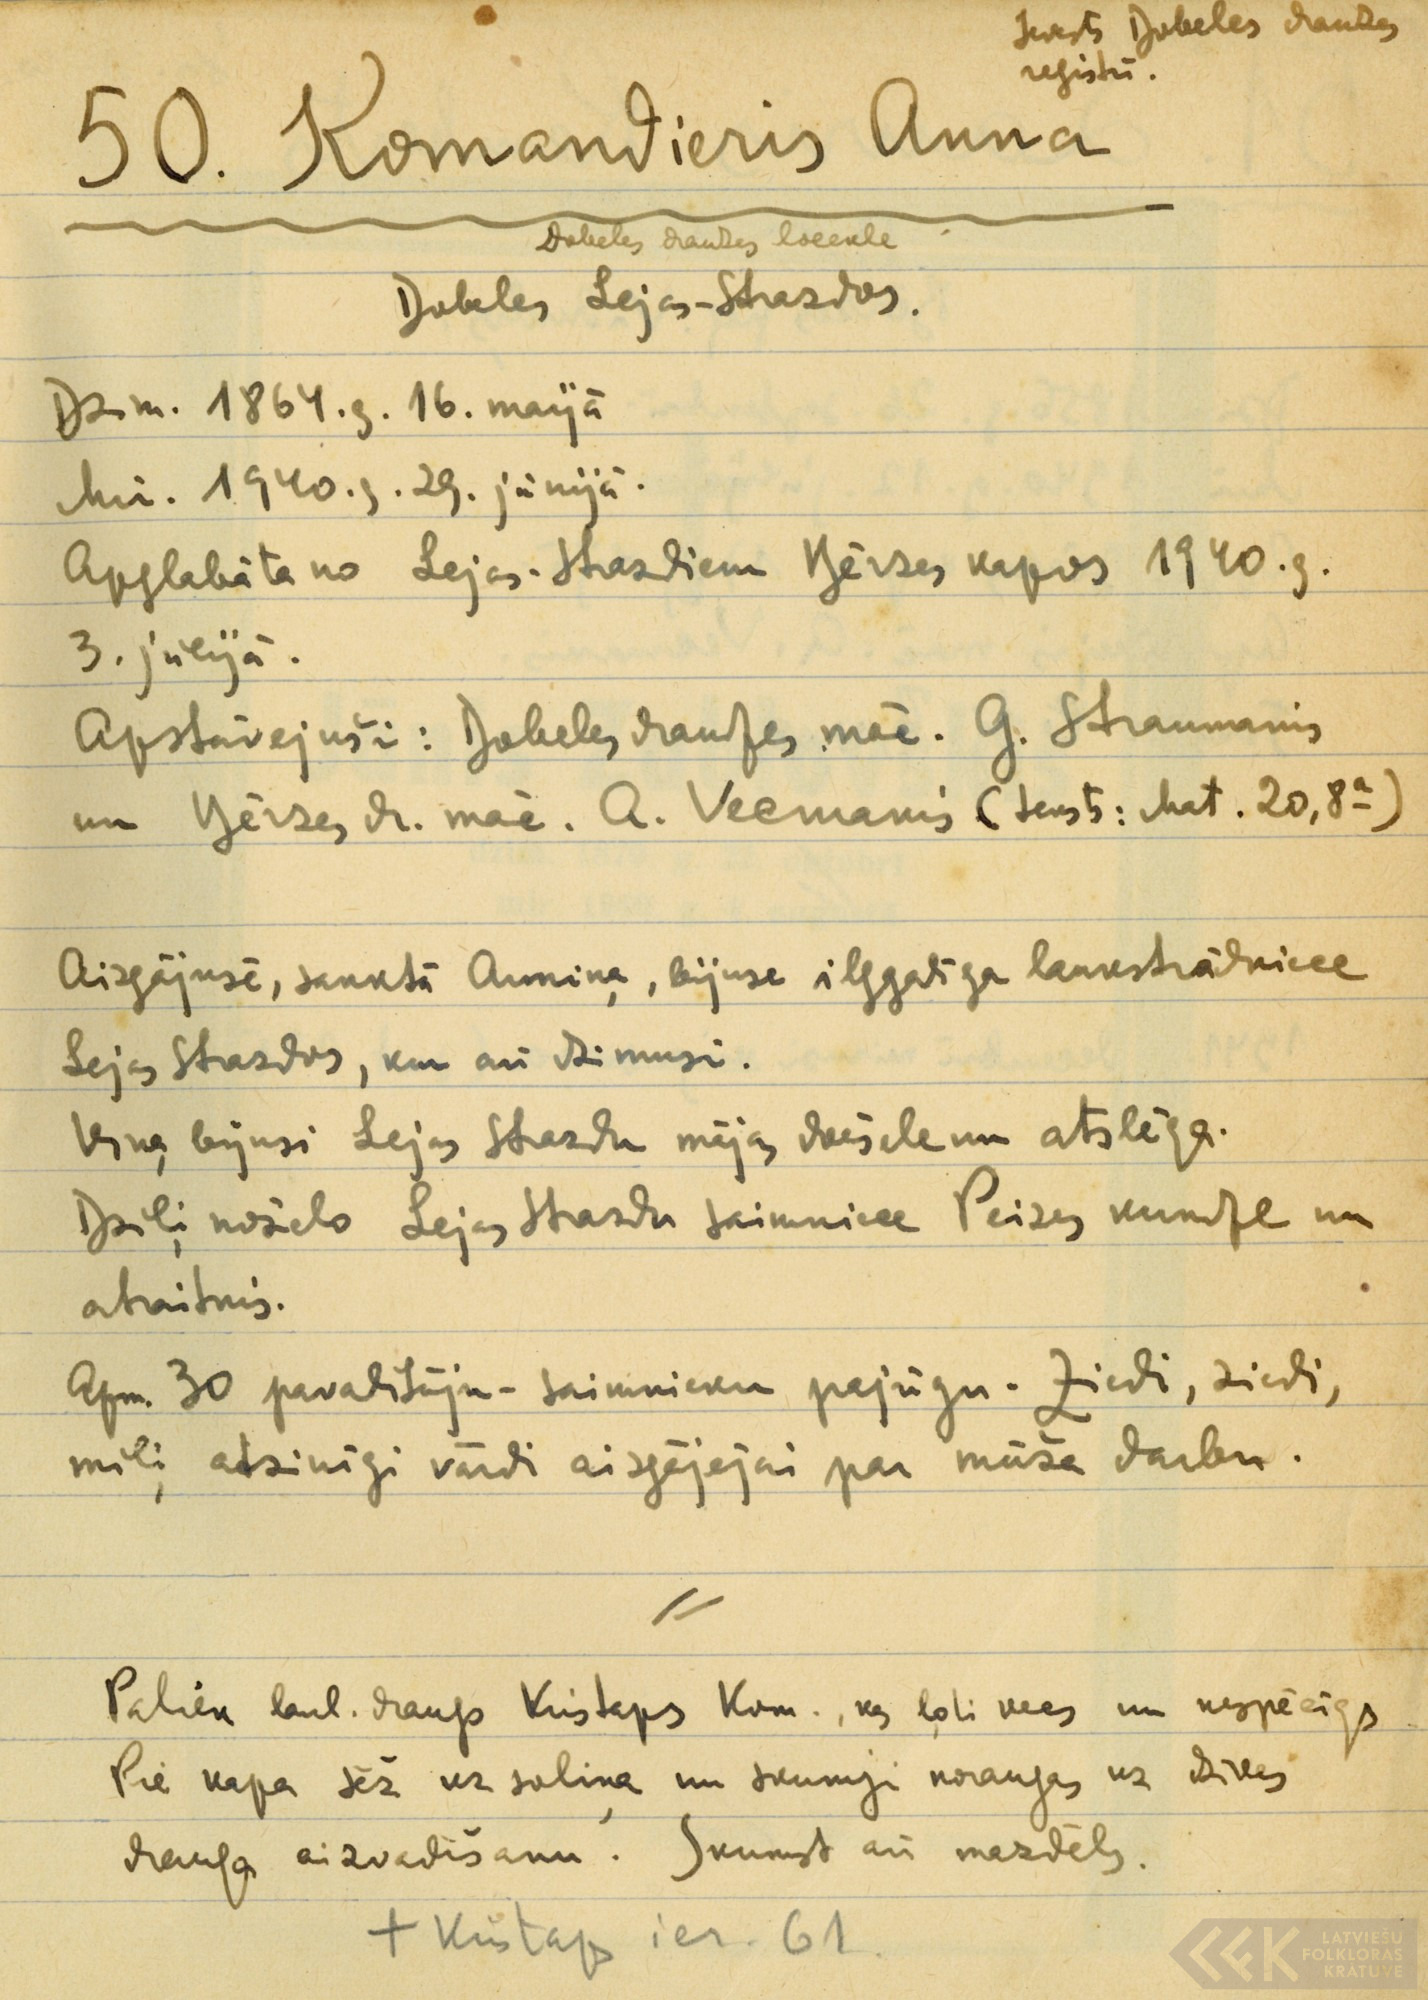 Ierakst. Dobeles draudzes
reģistrī.
50. Komandieris Anna
Dobeles draudzes locekle
Dobeles Lejas-Strazdos.
Dzim. 1864.g. 16. maijā
Mir. 1940.g. 29. jūnijā.
Apglabāta no Lejas-Strazdiem Bērzes kapos 1940.g.
3. jūlijā.
Apstāvejuši: Dobeles draudzes māc. G. Straumanis
un Bērzes dr. māc. A. Vecmanis (teksts: Mat. 20,8a)
Aizgājusē, sauktā Anniņa, bijuse ilggadīga laukstrādniece
Lejas Strazdos, kur arī dzimusi.
Viņa bijusi Lejas Strazdu mājas dvēsele un atslēga.
Dziļi nožēlo Lejas Strazdu saimniece Peizes kundze un
atraitnis.
Apm. 30 pavadītāju - saimnieku pajūgu. Ziedi, ziedi,
mīļi, atzinīgi vārdi aizgājējai par mūža darbu.
Paliek laul. draugs Kristaps Kom., kas ļoti vecs un nespēcīgs
Pie kapa sēž uz soliņa un skumji noraugas uz dzīves
drauga aizvadīšanu. Skumst arī mazdēls.
+ Kristaps ier. 61.
LATVIEŠU
FOLKLORAS
KRĀTUVE